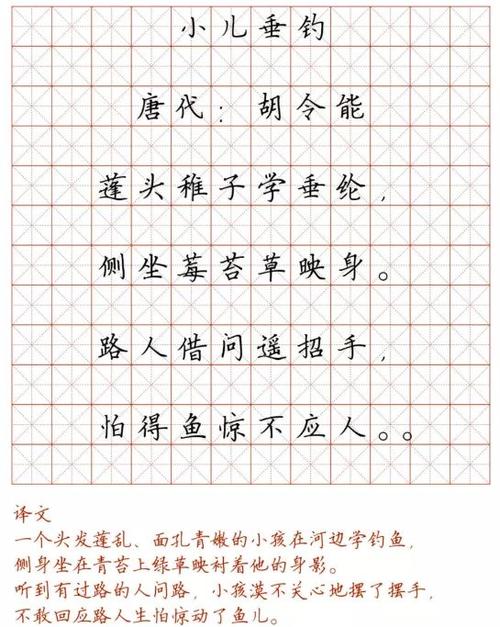 小儿垂钓
唐代：胡令能
蓬头稚子学垂纶，
侧坐莓苔草映身。
路人借问遥招手，
怕得鱼惊不应人。。
译文
一个头发蓬乱、面孔青嫩的小孩在河边学钓鱼，
侧身坐在青苔上绿草映衬着他的身影。
听到有过路的人问路，小孩漠不关心地摆了摆手，
不敢回应路人生怕惊动了鱼儿。